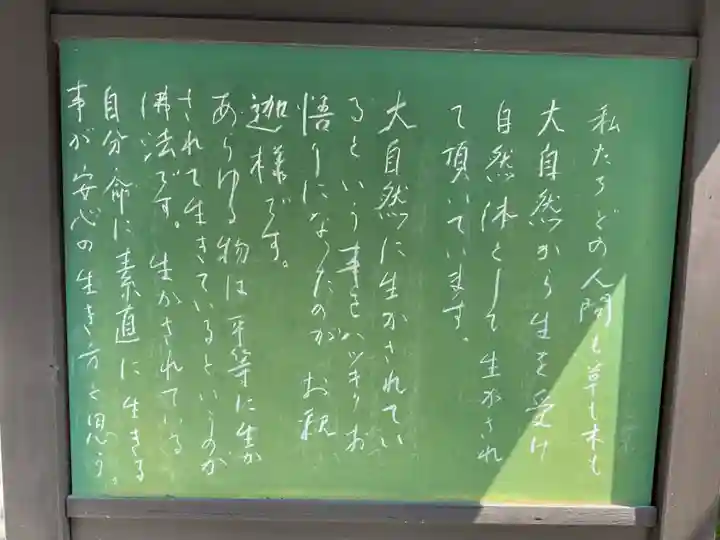 私たちどの人間も草も木も
大自然から生を受け
自然体として生かされ
て頂いています。
大自然に生かされてい
るという事をハッキリお
悟りになったのが お釈
迦様です。
あらゆる物は平等に生か
されて生きているというのが
佛法です。生かされている
自分の命に素直に生きる
事が安心の生き方と思う。